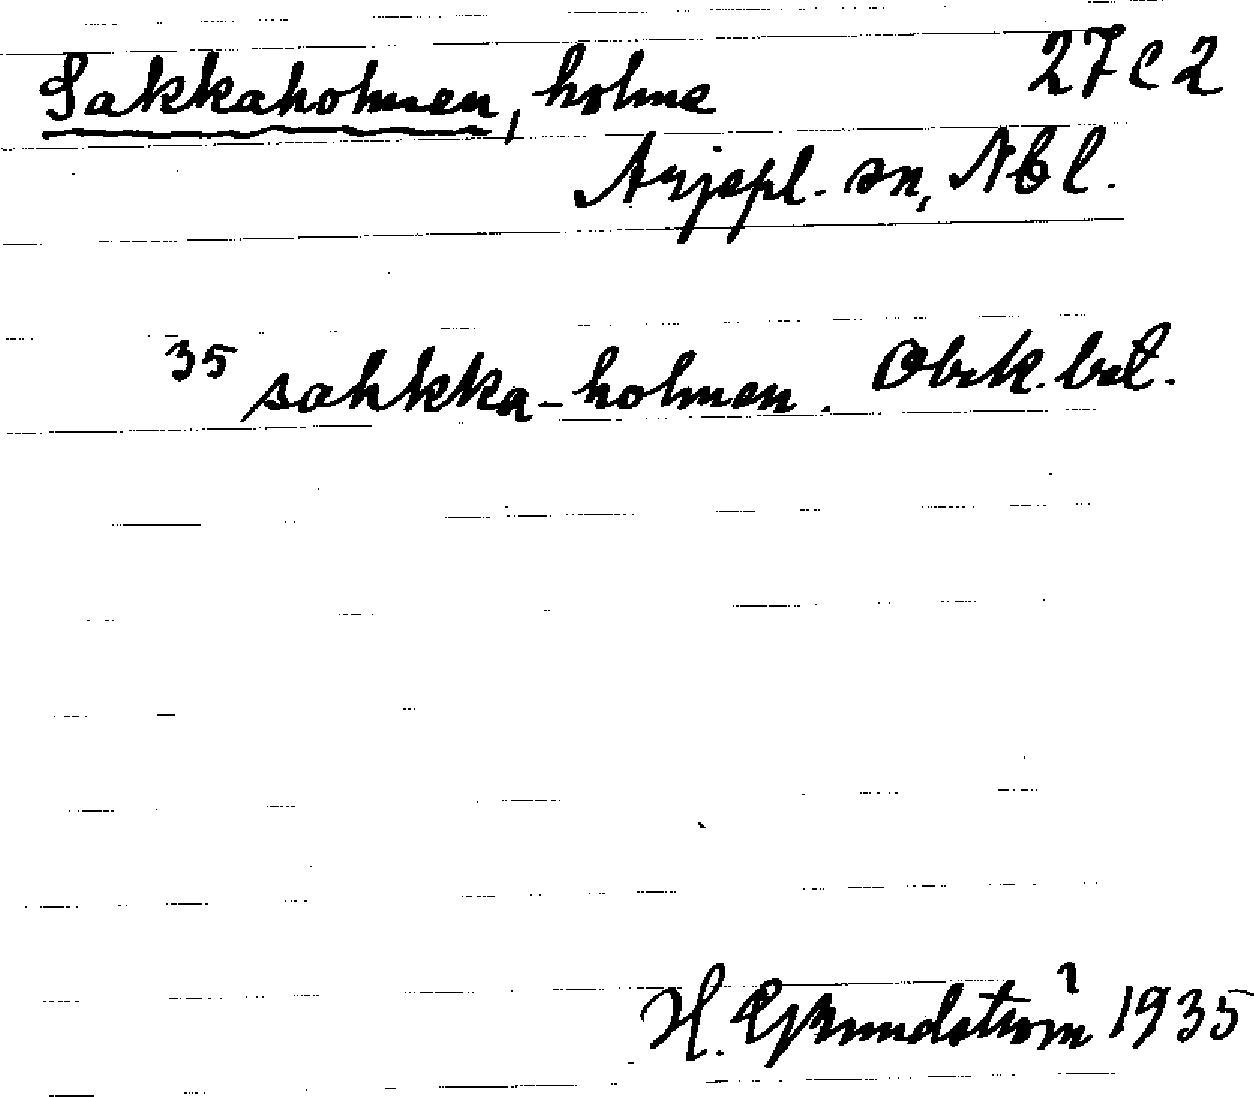 Sakkaholmen, holme 27 c 2
Arjepl. sn, Nbl.
35 sahkka-holmen. Obek. bet.
H. Grundström 1935